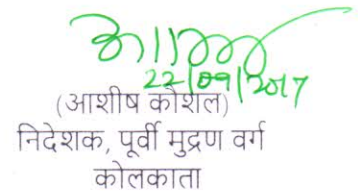 22/09/2017
(आशीष कौशल)
निदेशक, पूर्वी मुद्रण वर्ग
कोलकाता